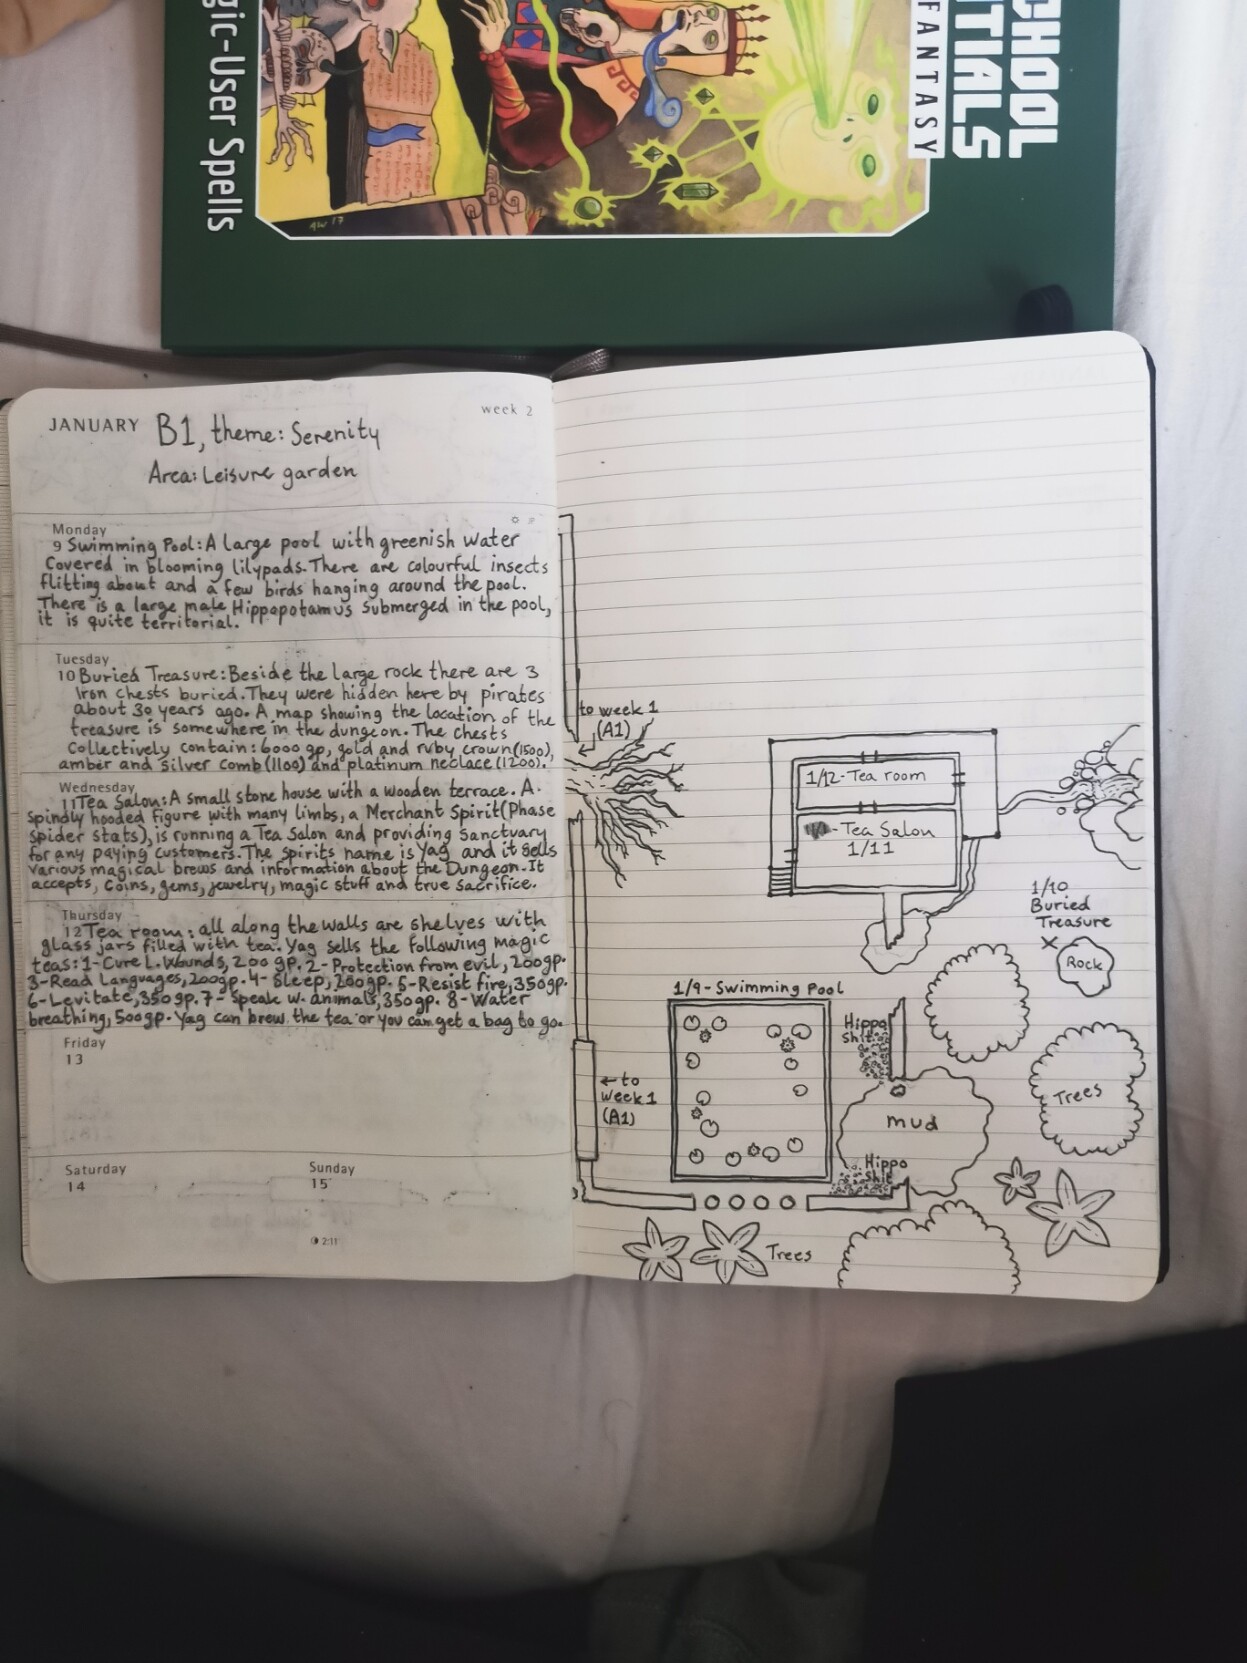 CHOOL
NTIALS
FANTASY
gic-User Spells
AW 17
JANUARY B1, theme: Serenity
week 2
Area: Leisure garden
Monday
9 Swimming Pool: A large pool with greenish water
Covered in blooming lilypads. There are colourful insects
flitting about and a few birds hanging around the pool.
There is a large male Hippopotamus submerged in the pool,
it is quite territorial.
Tuesday
10 Buried Treasure: Beside the large rock there are 3
Iron chests buried. They were hidden here by pirates
about 30 years ago. A map showing the location of the
treasure is somewhere in the dungeon. The chests
Collectively contain: 6000 gp, gold and ruby crown (1500),
amber and silver comb (1100) and platinum neclace (1200).
Wednesday
11 Tea Salon: A small stone house with a wooden terrace. A
spindly hooded figure with many limbs, a Merchant Spirit (Phase
spider stats), is running a Tea Salon and providing Sanctuary
for any paying customers. The spirits name is Yag and it sells
various magical brews and information about the Dungeon. It
accepts, coins, gems, jewelry, magic stuff and true sacrifice.
Thursday
12 Tea room: all along the walls are shelves with
glass jars filled with tea. Yag sells the following magic
teas: 1- Cure L. Wounds, 200 gp. 2- Protection from evil, 200gp.
3- Read Languages, 200gp. 4- Sleep, 200gp. 5- Resist fire, 350gp.
6- Levitate, 350gp. 7- Speak w. animals, 350gp. 8- Water
breathing, 500gp. Yag can brew the tea or you can get a bag to go.
Friday
13
Saturday
14
Sunday
15
2:11
to week 1
(A1)
1/12- Tea room
- Tea Salon
1/11
1/10
Buried
Treasure
X
Rock
1/9- Swimming Pool
Hippo
shit
← to
week 1
(A1)
mud
Trees
Hippo
shit
Trees